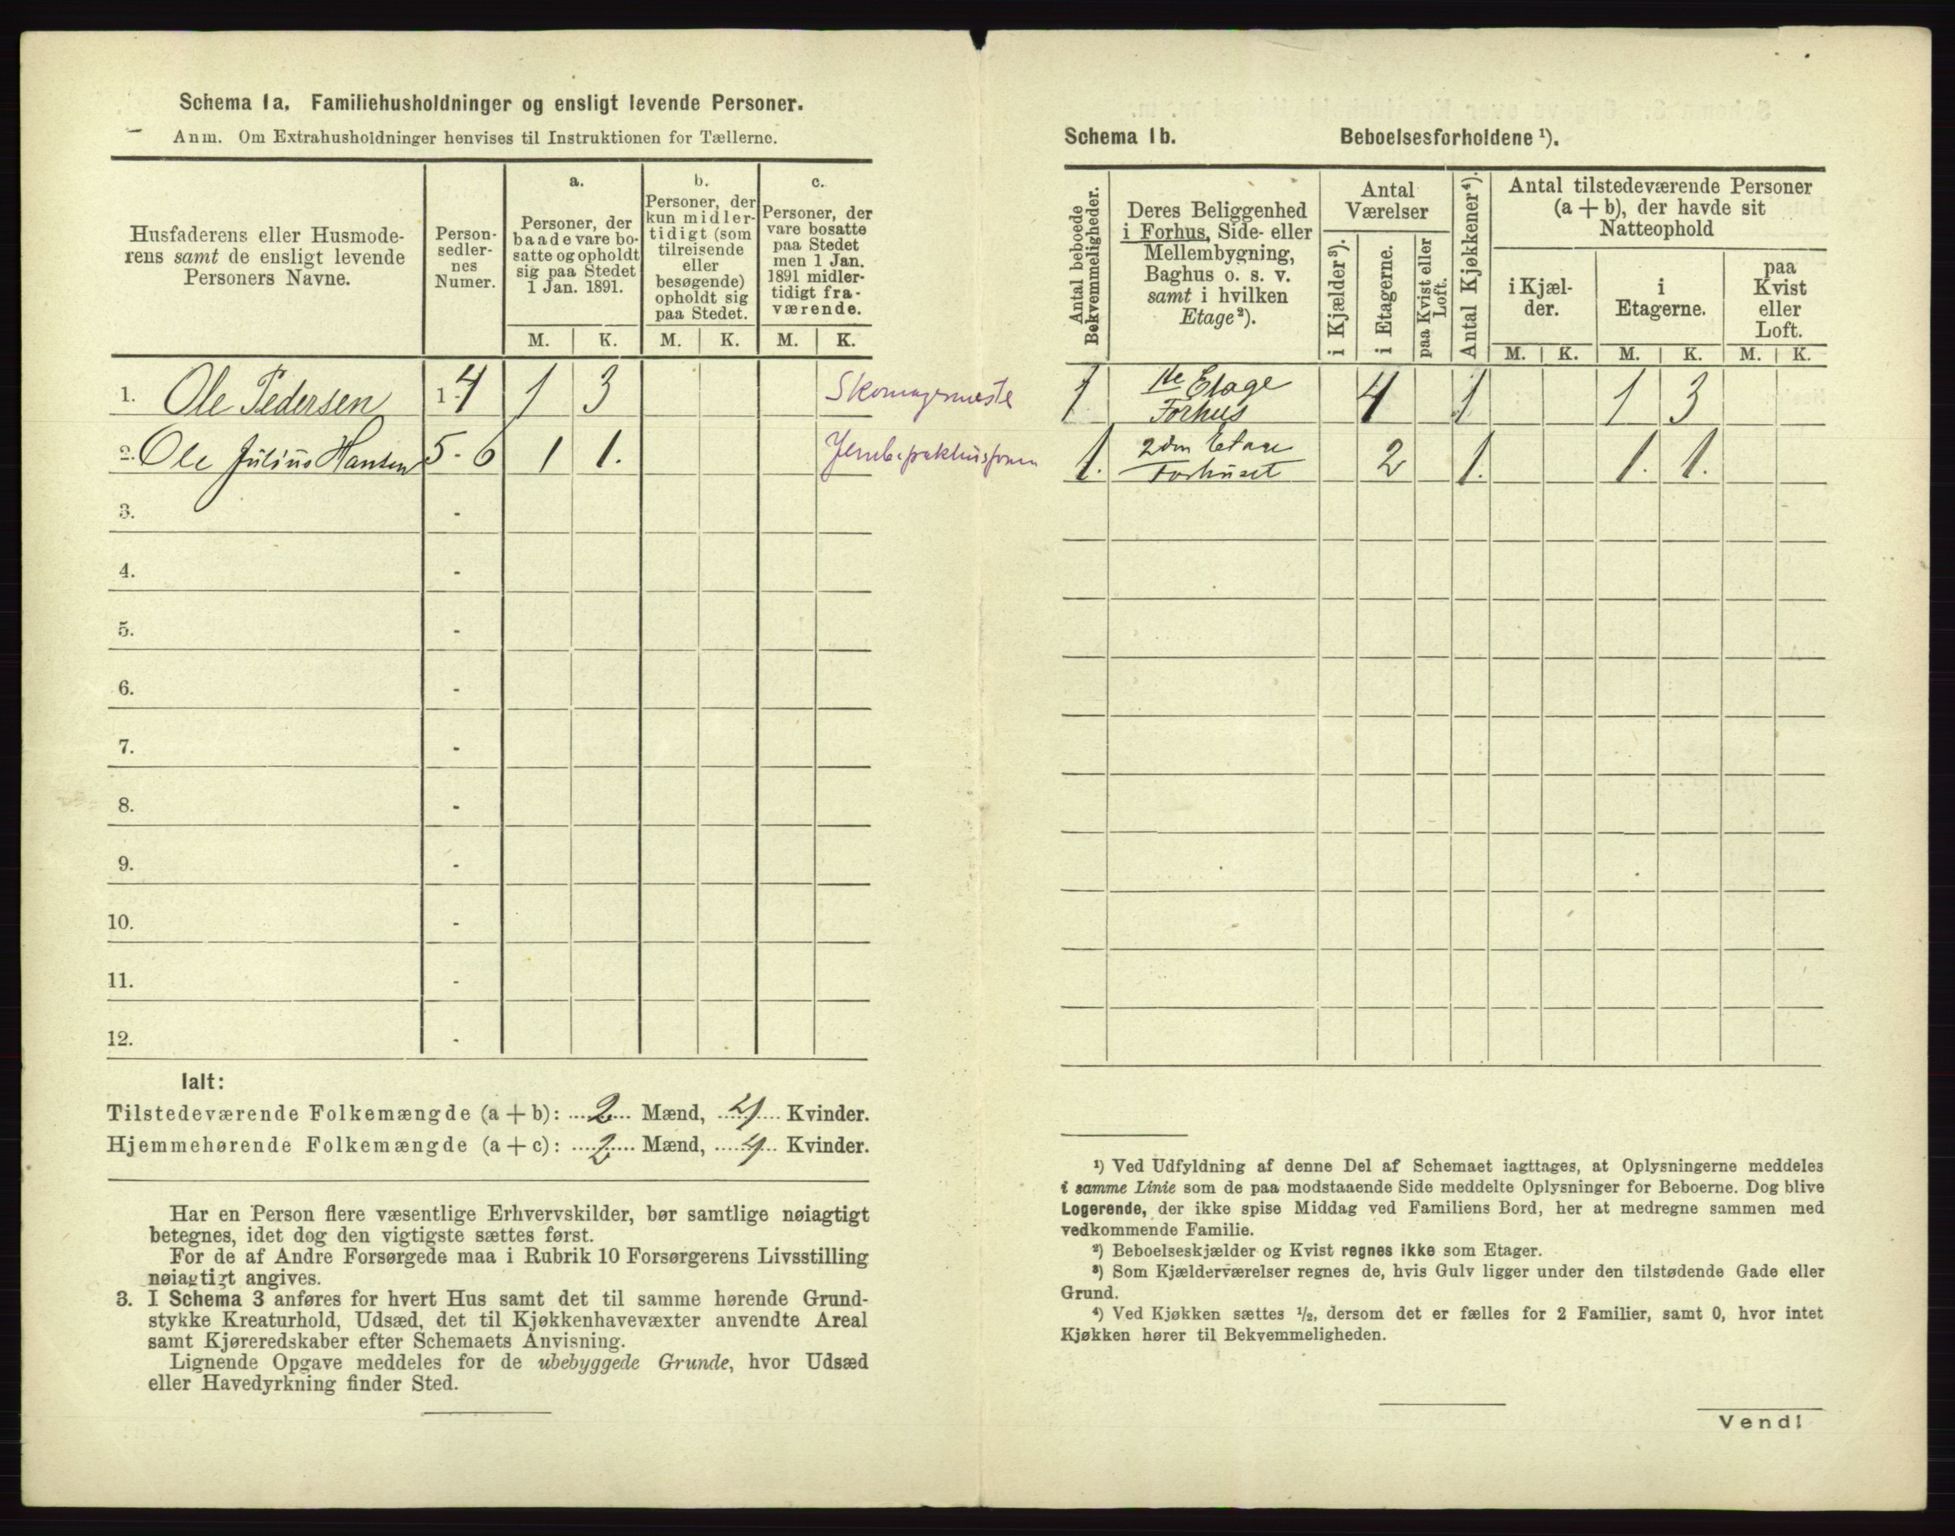 Schema 1a. Familiehusholdninger og ensligt levende Personer.
Anm. Om Extrahusholdninger henvises til Instruktionen for Tællerne.
Husfaderens eller Husmode-
rens samt de ensligt levende
Personers Navne.
Person-
sedler-
nes
Numer.
a.
Personer, der
baade vare bo-
satte og opholdt
sig paa Stedet
1 Jan. 1891.
b.
Personer, der
kun midler-
tidigt (som
tilreisende
eller
besøgende)
opholdt sig
paa Stedet.
c.
Personer, der
vare bosatte
paa Stedet
men 1 Jan.
1891 midler-
tidigt fra-
værende.
M. K. M. K. M. K.
1. Ole Pedersen 1-4 1 3 Skomagermeste
2. Ole Julius Hansen 5-6 1 1.
3. -
4. -
5. -
6. -
7. -
8. -
9. -
10. -
11. -
12. -
Ialt:
Tilstedeværende Folkemængde (a + b): 2 Mænd, 4 Kvinder.
Hjemmehørende Folkemængde (a + c): 2 Mænd, 4 Kvinder.
Har en Person flere væsentlige Erhvervskilder, bør samtlige nøiagtigt
betegnes, idet dog den vigtigste sættes først.
For de af Andre Forsørgede maa i Rubrik 10 Forsørgerens Livsstilling
nøiagtigt angives.
3. I Schema 3 anføres for hvert Hus samt det til samme hørende Grund-
stykke Kreaturhold, Udsæd, det til Kjøkkenhavevæxter anvendte Areal
samt Kjøreredskaber efter Schemaets Anvisning.
Lignende Opgave meddeles for de ubebyggede Grunde, hvor Udsæd
eller Havedyrkning finder Sted.
Schema 1b. Beboelsesforholdene ¹).
Antal beboede
Bekvemmeligheder.
Deres Beliggenhed
i Forhus, Side- eller
Mellembygning,
Baghus o. s. v.
samt i hvilken
Etage²).
Antal
Værelser
i Kjælder³).
i Etagerne.
paa Kvist eller
Loft.
Antal Kjøkkener⁴).
Antal tilstedeværende Personer
(a + b), der havde sit
Natteophold
i Kjæl-
der.
i
Etagerne.
paa
Kvist
eller
Loft.
M. K. M. K. M. K.
1 1te Etage
Forhus 4 1 1 3
1. 2den Etage
Forhuset 2 1. 1. 1.
¹) Ved Udfyldning af denne Del af Schemaet iagttages, at Oplysningerne meddeles
i samme Linie som de paa modstaaende Side meddelte Oplysninger for Beboerne. Dog blive
Logerende, der ikke spise Middag ved Familiens Bord, her at medregne sammen med
vedkommende Familie.
²) Beboelseskjælder og Kvist regnes ikke som Etager.
³) Som Kjælderværelser regnes de, hvis Gulv ligger under den tilstødende Gade eller
Grund.
⁴) Ved Kjøkken sættes ½, dersom det er fælles for 2 Familier, samt 0, hvor intet
Kjøkken hører til Bekvemmeligheden.
Vend!